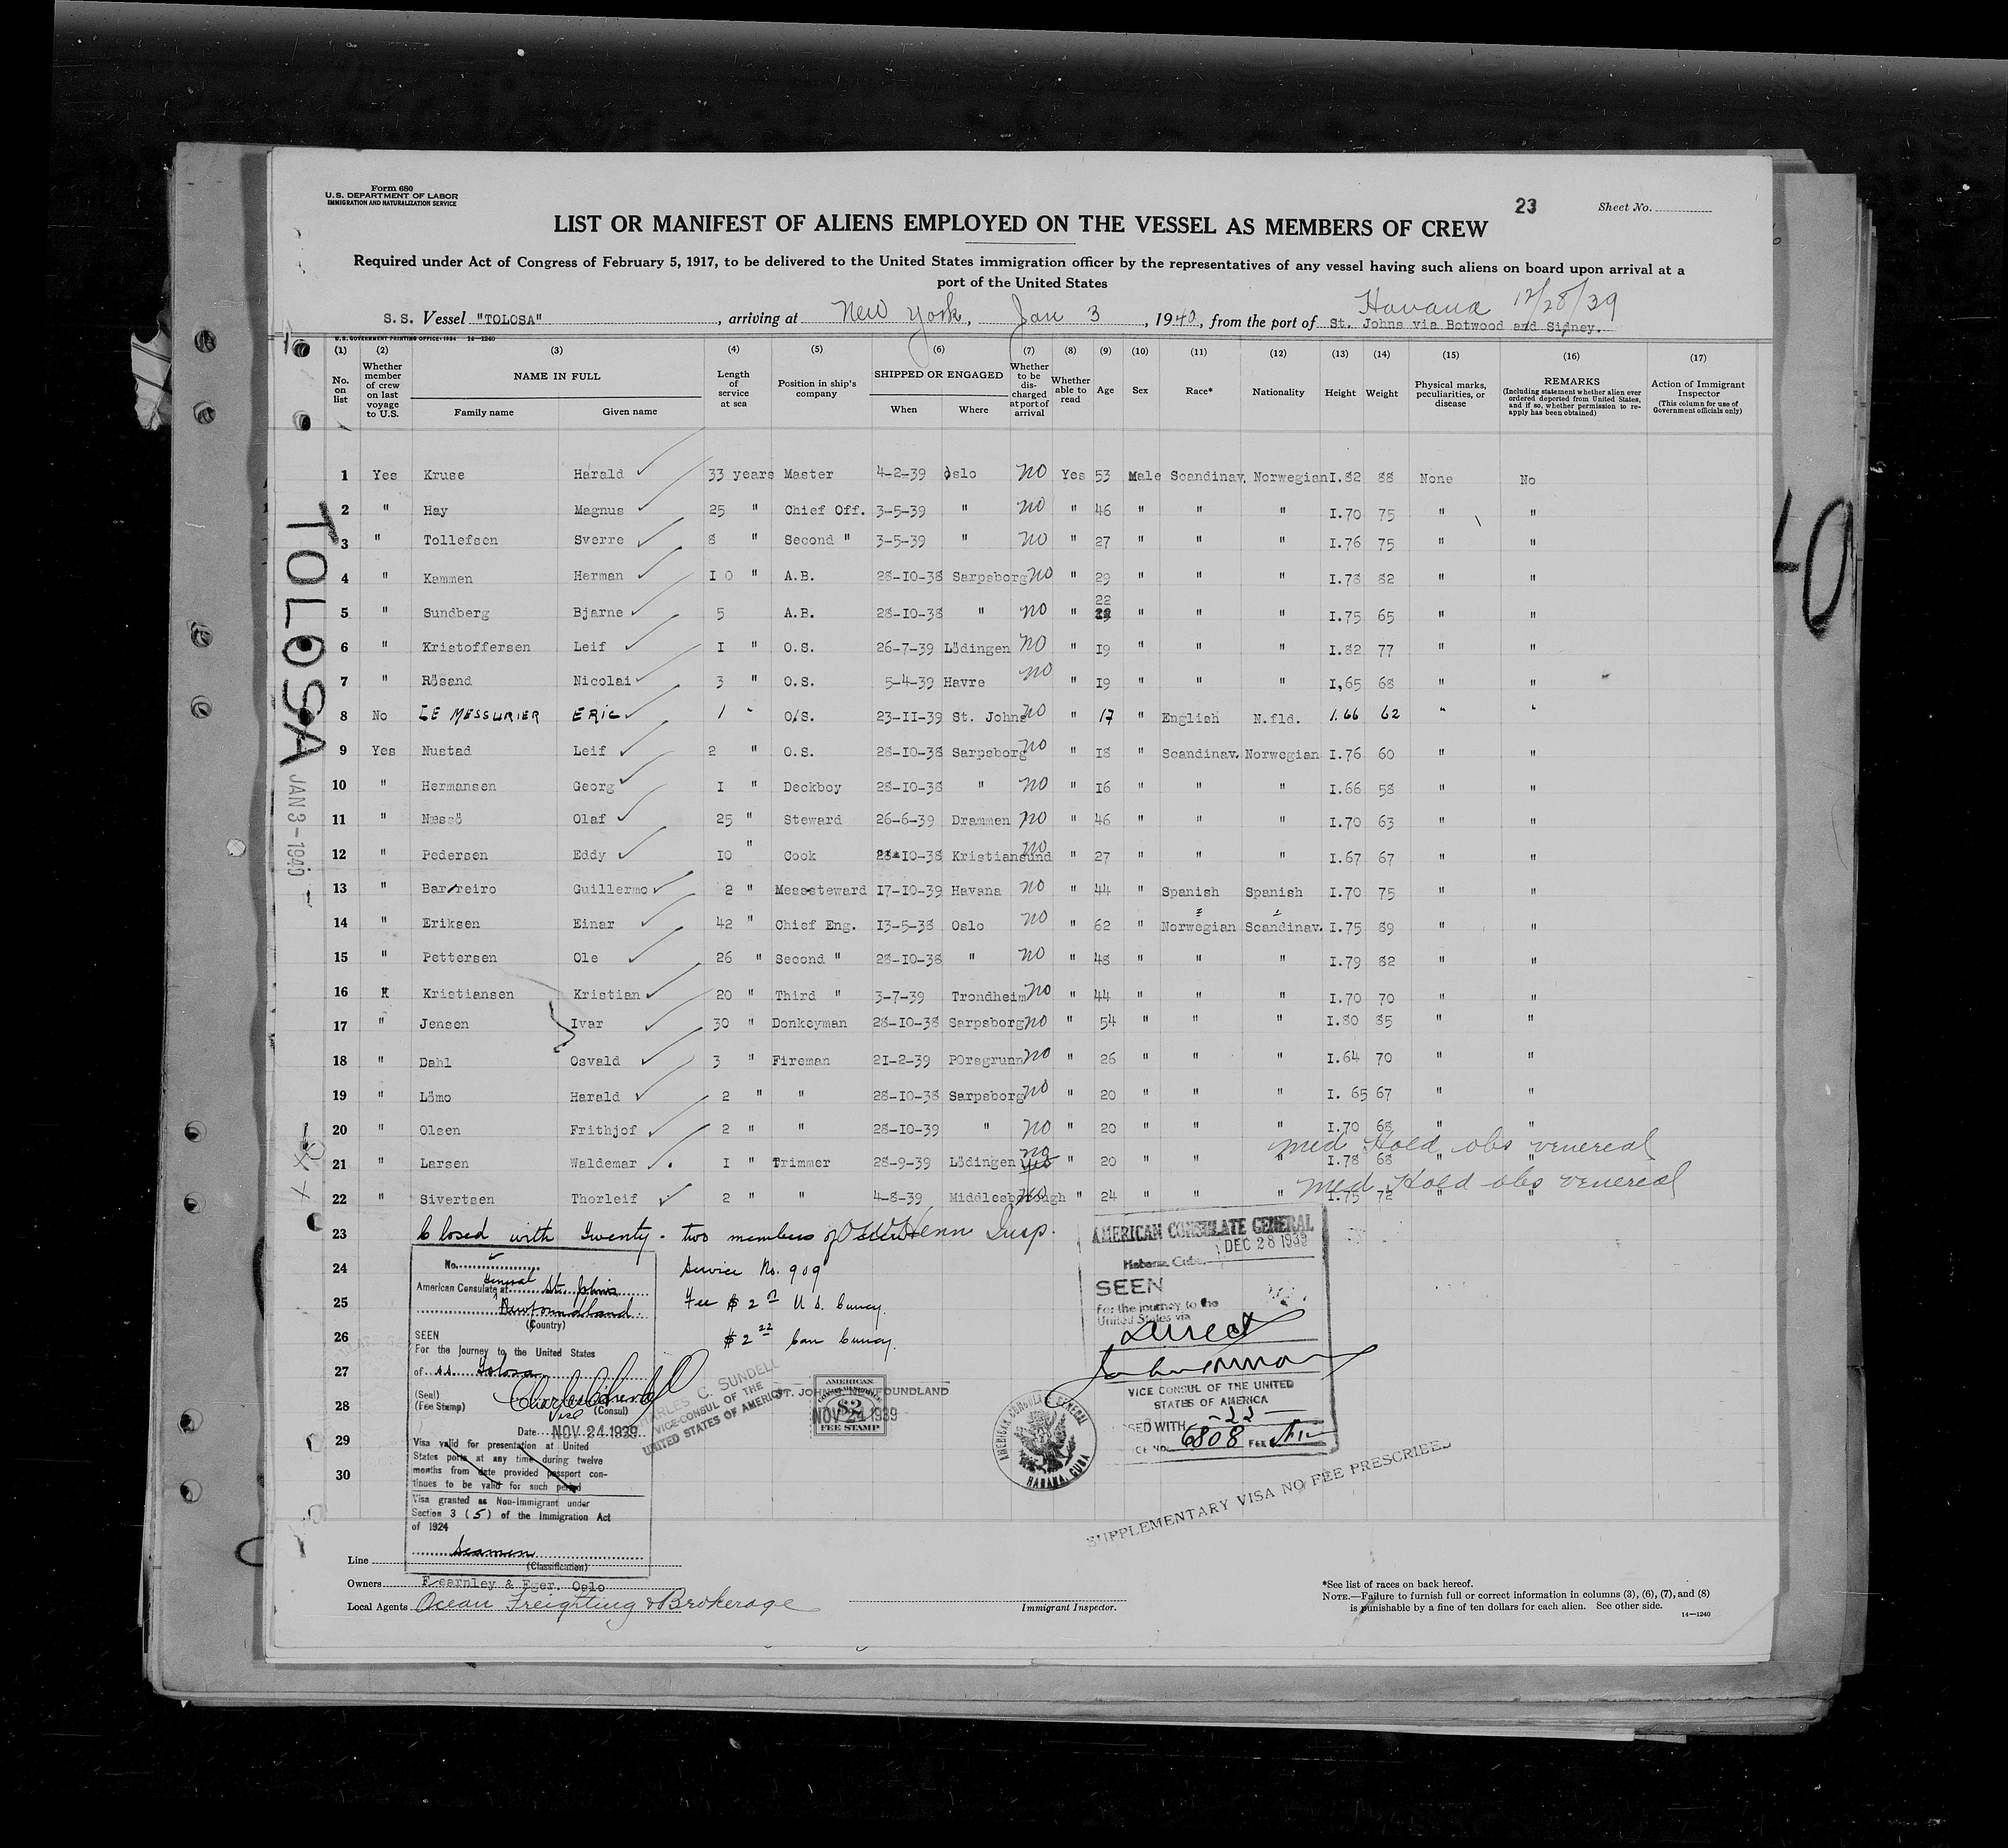 Form 680
U.S. DEPARTMENT OF LABOR
IMMIGRATION AND NATURALIZATION SERVICE
23
Sheet No.
LIST OR MANIFEST OF ALIENS EMPLOYED ON THE VESSEL AS MEMBERS OF CREW
Required under Act of Congress of February 5, 1917, to be delivered to the United States immigration officer by the representatives of any vessel having such aliens on board upon arrival at a
port of the United States
Havana 12/28/39
S.S. Vessel "TOLOSA", arriving at New York, Jan 3, 1940, from the port of St. Johns via Botwood and Sidney.
U.S. GOVERNMENT PRINTING OFFICE: 1934 14—1240
(1) (2) (3) (4) (5) (6) (7) (8) (9) (10) (11) (12) (13) (14) (15) (16) (17)
No. on list
Whether member of crew on last voyage to U.S.
NAME IN FULL
Family name Given name
Length of service at sea
Position in ship's company
SHIPPED OR ENGAGED
When Where
Whether to be discharged at port of arrival
Whether able to read
Age
Sex
Race*
Nationality
Height
Weight
Physical marks, peculiarities, or disease
REMARKS
(Including statement whether alien ever ordered deported from United States, and if so, whether permission to reapply has been obtained)
Action of Immigrant Inspector
(This column for use of Government officials only)
1 Yes Kruse Harald 33 years Master 4-2-39 Oslo no Yes 53 Male Scandinav. Norwegian I.82 88 None No
2 " Hay Magnus 25 " Chief Off. 3-5-39 " no " 46 " " " I.70 75 " "
3 " Tollefsen Sverre 8 " Second " 3-5-39 " no " 27 " " " I.76 75 " "
4 " Kammen Herman I0 " A.B. 28-I0-38 Sarpsborg no " 29 " " " I.78 82 " "
5 " Sundberg Bjarne 5 A.B. 28-I0-38 " no " 22 " " " I.75 65 " "
6 " Kristoffersen Leif I " O.S. 26-7-39 Lödingen no " I9 " " " I.82 77 " "
7 " Rösand Nicolai 3 " O.S. 5-4-39 Havre no " I9 " " " I,65 68 " "
8 No LE MESSURIER ERIC 1 " O/S. 23-II-39 St. Johns no " 17 " English N.fld. 1.66 62 " "
9 Yes Nustad Leif 2 " O.S. 28-I0-38 Sarpsborg no " I8 " Scandinav. Norwegian I.76 60 " "
10 " Hermansen Georg I " Deckboy 28-I0-38 " no " I6 " " " I.66 58 " "
11 " Næssö Olaf 25 " Steward 26-6-39 Drammen no " 46 " " " I.70 63 " "
12 " Pedersen Eddy I0 " Cook 28-I0-38 Kristiansund no " 27 " " " I.67 67 " "
13 " Barreiro Guillermo 2 " Messsteward I7-I0-39 Havana no " 44 " Spanish Spanish I.70 75 " "
14 " Eriksen Einar 42 " Chief Eng. I3-5-38 Oslo no " 62 " Norwegian Scandinav. I.75 89 " "
15 " Pettersen Ole 26 " Second " 28-I0-38 " no " 48 " " " I.79 82 " "
16 " Kristiansen Kristian 20 " Third " 3-7-39 Trondheim no " 44 " " " I.70 70 " "
17 " Jensen Ivar 30 " Donkeyman 28-I0-38 Sarpsborg no " 54 " " " I.80 85 " "
18 " Dahl Osvald 3 " Fireman 2I-2-39 POrsgrunn no " 26 " " " I.64 70 " "
19 " Lömo Harald 2 " " 28-I0-38 Sarpsborg no " 20 " " " I. 65 67 " "
20 " Olsen Frithjof 2 " " 28-I0-39 " no " 20 " " " I.70 68 " "
21 " Larsen Waldemar I " Trimmer 28-9-39 Lödingen no Yes " 20 " " " I.78 68 " " med Hold obs venereal
22 " Sivertsen Thorleif 2 " " 4-8-39 Middlesborough no " 24 " " " I.75 72 " " med Hold obs venereal
23 Closed with Twenty-two members of Insp.
24
25
26
27
28
29
30
No.
American Consulate General at St. Johns
Newfoundland
(Country)
SEEN
For the Journey to the United States
of ss. Tolosa
(Seal)
(Fee Stamp)
Vice (Consul)
Date NOV 24 1939
Visa valid for presentation at United
States ports at any time during twelve
months from date provided passport con-
tinues to be valid for such period
Visa granted as Non-Immigrant under
Section 3 (5) of the Immigration Act
of 1924
Seamen
(Classification)
Service No. 909
Fee $2 U S. Curncy.
$2 22 Can Curncy.
CHARLES C. SUNDELL
VICE-CONSUL OF THE
UNITED STATES OF AMERICA
ST. JOHN'S, NEWFOUNDLAND
AMERICAN
$2
FEE STAMP
NOV 24 1939
AMERICAN CONSULATE GENERAL
DEC 28 1939
Habana, Cuba
SEEN
For the journey to the
United States via
Direct
VICE CONSUL OF THE UNITED
STATES OF AMERICA
SED WITH -22-
CE NO. 6808 FEE
AMERICAN CONSULATE GENERAL
HABANA, CUBA
SUPPLEMENTARY VISA NO FEE PRESCRIBED
Line
Owners Fearnley & Eger. Oslo
Local Agents Ocean Freighting & Brokerage
Immigrant Inspector.
*See list of races on back hereof.
NOTE.—Failure to furnish full or correct information in columns (3), (6), (7), and (8)
is punishable by a fine of ten dollars for each alien. See other side.
14—1240
TOLOSA
JAN 3-1940